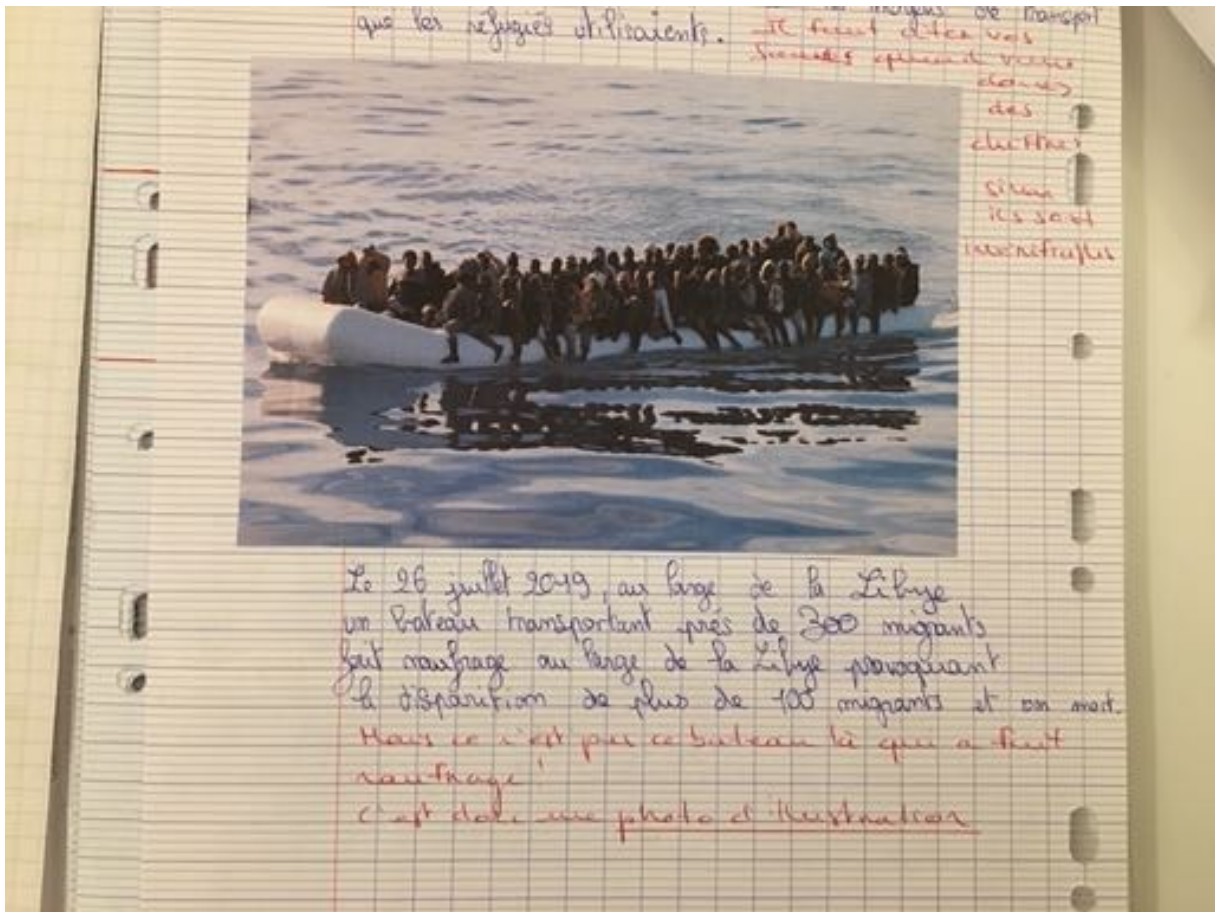 moyens de transport
que les réfugiés utilisaients.
Il faut citer vos
sources quand vous
donnez
des
chiffres
sinon
ils sont
invérifiables
Le 26 juillet 2019, au large de la Libye
un bateau transportant près de 300 migrants
fait naufrage au large de la Libye provoquant
la disparition de plus de 100 migrants et un mort.
Mais ce n'est pas ce bateau là qui a fait
naufrage !
C'est donc une photo d'illustration